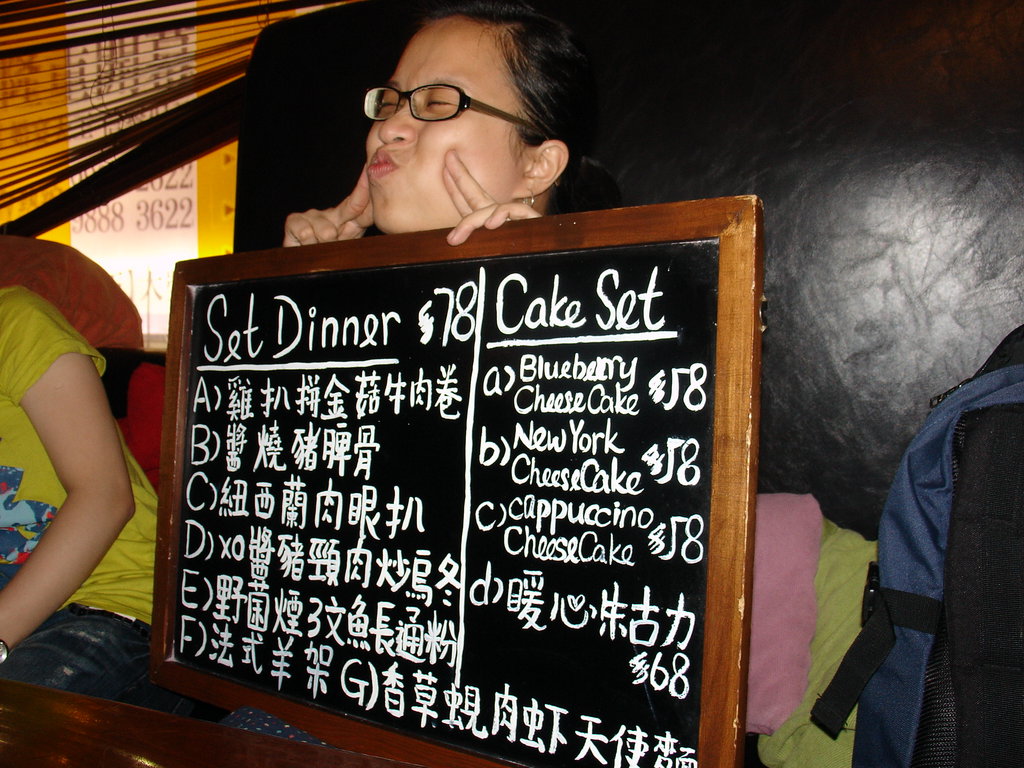 2622
9888 3622
Set Dinner $78
A) 雞扒拼金菇牛肉卷
B) 醬燒豬脾骨
C) 紐西蘭肉眼扒
D) XO醬豬頸肉炒烏冬
E) 野菌煙3文魚長通粉
F) 法式羊架
G) 香草蜆肉虾天使麵
Cake Set
a) Blueberry
CheeseCake $58
b) New York
CheeseCake $58
c) cappuccino
CheeseCake $58
d) 暖心朱古力
$68